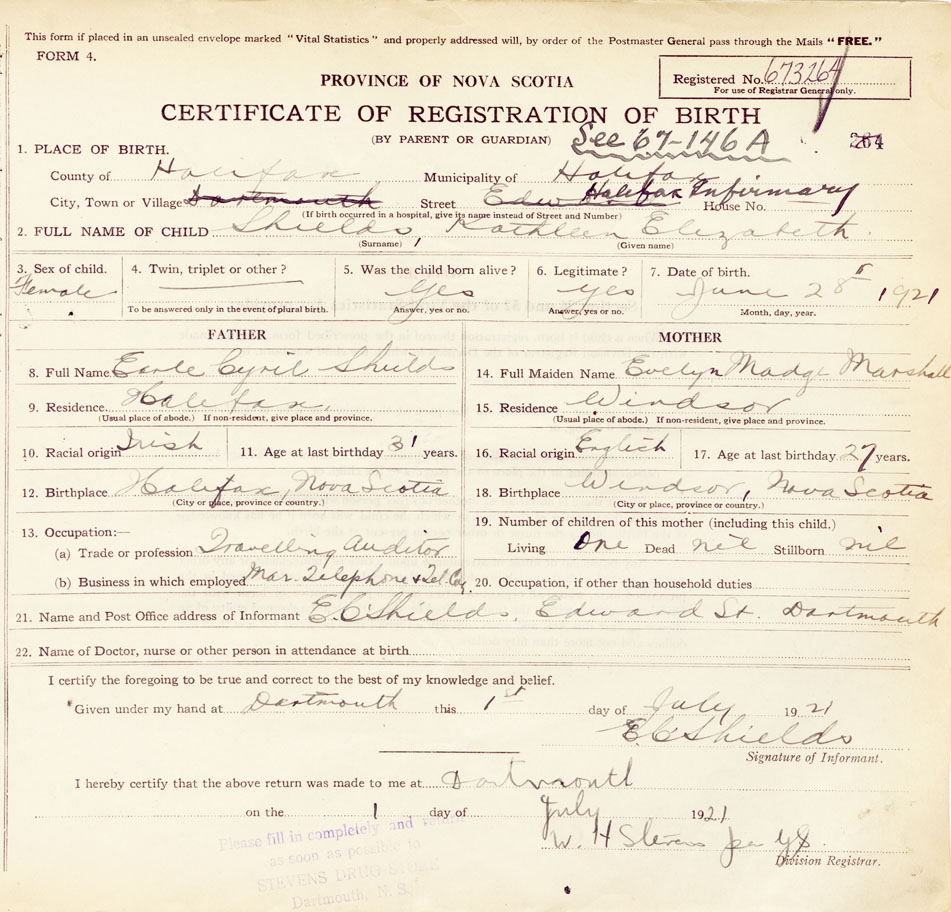 This form if placed in an unsealed envelope marked "Vital Statistics" and properly addressed will, by order of the Postmaster General pass through the Mails "FREE."
FORM 4.
PROVINCE OF NOVA SCOTIA
Registered No. 673264
For use of Registrar General only.
CERTIFICATE OF REGISTRATION OF BIRTH
(BY PARENT OR GUARDIAN)
See 67-146A
264
1. PLACE OF BIRTH.
County of Halifax Municipality of Halifax
City, Town or Village Dartmouth Street Edw Halifax Infirmary House No.
(If birth occurred in a hospital, give its name instead of Street and Number)
2. FULL NAME OF CHILD Shields, Kathleen Elizabeth.
(Surname) (Given name)
3. Sex of child. Female
4. Twin, triplet or other?
To be answered only in the event of plural birth.
5. Was the child born alive? Yes
Answer, yes or no.
6. Legitimate? Yes
Answer, yes or no.
7. Date of birth. June 28 1921
Month, day, year.
FATHER
8. Full Name Earle Cyril Shields
9. Residence Halifax.
(Usual place of abode.) If non-resident, give place and province.
10. Racial origin Irish 11. Age at last birthday 31 years.
12. Birthplace Halifax, Nova Scotia
(City or place, province or country.)
13. Occupation:—
(a) Trade or profession Travelling Auditor
(b) Business in which employed Mar. Telephone & Tel. Coy.
MOTHER
14. Full Maiden Name Evelyn Madge Marshall
15. Residence Windsor
(Usual place of abode.) If non-resident, give place and province.
16. Racial origin English 17. Age at last birthday 27 years.
18. Birthplace Windsor, Nova Scotia
(City or place, province or country.)
19. Number of children of this mother (including this child.)
Living One Dead nil Stillborn nil
20. Occupation, if other than household duties
21. Name and Post Office address of Informant E.C. Shields, Edward St. Dartmouth
22. Name of Doctor, nurse or other person in attendance at birth
I certify the foregoing to be true and correct to the best of my knowledge and belief.
Given under my hand at Dartmouth this 1st day of July 1921
E.C. Shields
Signature of Informant.
I hereby certify that the above return was made to me at Dartmouth
on the 1 day of July 1921.
W. H Stevens
Division Registrar.
Please fill in completely and return
as soon as possible to
STEVENS DRUG STORE
Dartmouth, N. S.